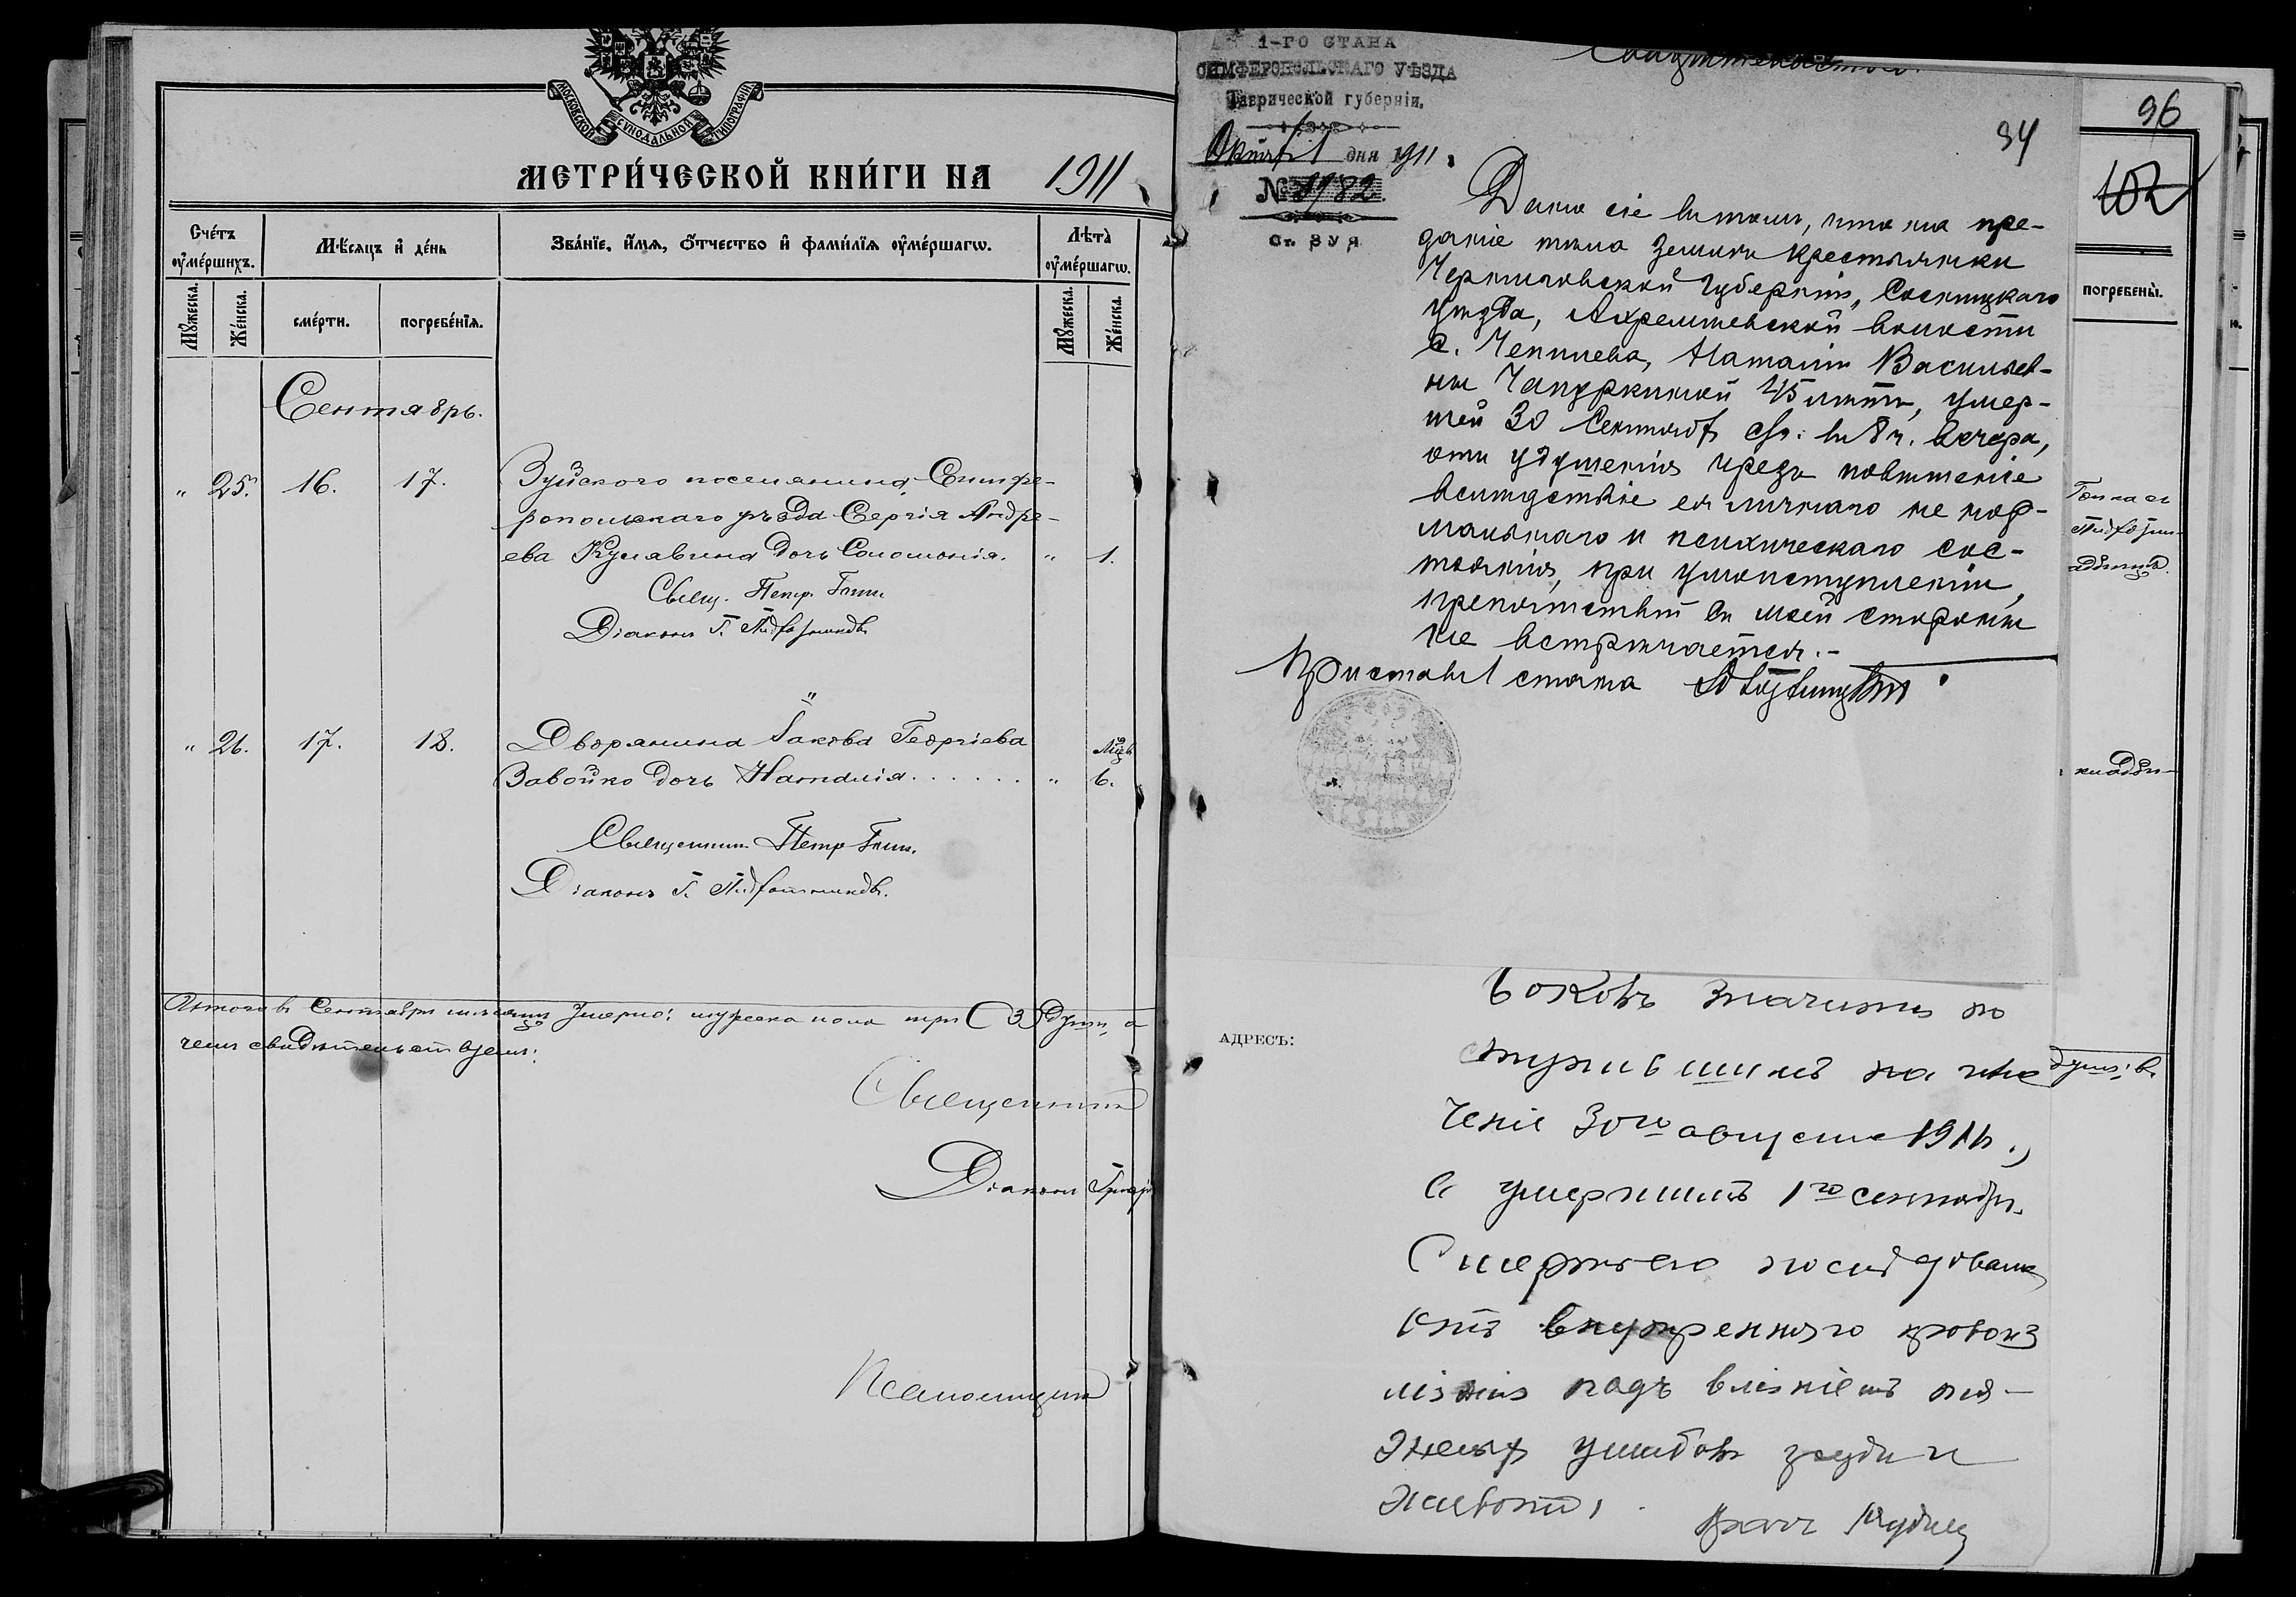 МОСКОВСКОЙ СѴНОДАЛЬНОЙ ТИПОГРАФІИ
МЕТРИ́ЧЕСКОЙ КНИ́ГИ НА 1911
Сче́тъ оу҆ме́ршихъ.
Мѣ́сяцъ и҆ де́нь
Зва́нїе, и҆́мя, ѻ҆́тчество и҆ фами́лїя оу҆ме́ршагѡ.
Лѣта̀ оу҆ме́ршагѡ.
Мꙋ́жеска.
Же́нска.
сме́рти.
погребе́нїя.
Мꙋ́жеска.
Же́нска.
Сентябрь.
" 25. 16. 17. Зуйского поселянина, Симфе-
ропольскаго уѣзда Сергія Андре-
ева Кулавина дочь Соломонія. " 1.
Свящ. Петр
Діаконъ Г.
" 26. 17. 18. Дворянина Іакова Георгіева Мѣс.
Завойко дочь Наталія. . . . . . " 6.
Священник Петр
Діаконъ Г.
Итого въ Сентябрѣ мѣсяцѣ умерло: мужеска пола три (3) души, о
чемъ свидѣтельствуемъ:
Священник
Діаконъ Григор
Псаломщик
1-ГО СТАНА
СИМФЕРОПОЛЬСКАГО УѢЗДА
Таврической губерніи.
Октяб 1 дня 1911
№ 1982
Ст. ЗУЯ
34
96
102
погребены̀.
Дано сіе въ томъ, что на пре-
даніе тѣла землѣ крестьянки
Черниговской Губерніи, Сосницкаго
уѣзда, Ахрамѣевской волости
с. Чепилева, Наталіи Васильев-
ны Чапуркиной 45 лѣтъ, умер-
шей 30 Сентября въ 8 ч. вечера,
отъ удушенія чрезъ повѣшеніе
вслѣдствіе ея личнаго не нор-
мальнаго и психическаго сос-
тоянія, при умоизступленіи,
препятствій съ моей стороны
не встрѣчается.-
Приставъ 1 стана
кладби-
душ: в.
АДРЕСЪ:
Боковъ значится по
ступившимъ на лѣ
ченіе 30го августа 1911 г.,
и умершимъ 1го сентября.
Смерть его послѣдовала
отъ внутренняго кровоиз
ліянія подъ вліяніемъ тя-
желыхъ ушибовъ груди и
живота,
Врачъ